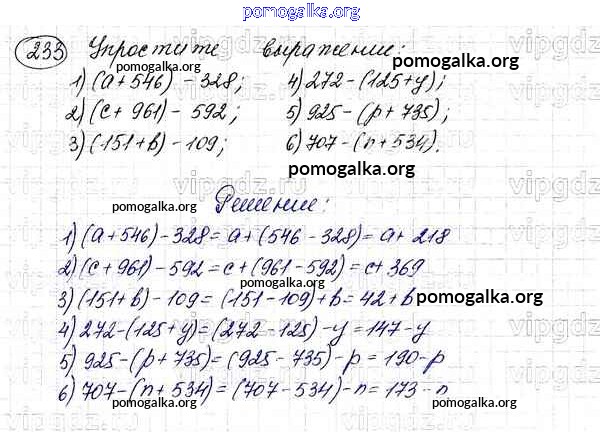 pomogalka.org
233 Упростите выражение:
1) (a + 546) - 328; 4) 272 - (125 + y);
2) (c + 961) - 592; 5) 925 - (p + 735);
3) (151 + b) - 109; 6) 707 - (n + 534).
pomogalka.org
pomogalka.org
pomogalka.org Решение: pomogalka.org
1) (a + 546) - 328 = a + (546 - 328) = a + 218
2) (c + 961) - 592 = c + (961 - 592) = c + 369
3) (151 + b) - 109 = (151 - 109) + b = 42 + b
pomogalka.org
pomogalka.org
4) 272 - (125 + y) = (272 - 125) - y = 147 - y
5) 925 - (p + 735) = (925 - 735) - p = 190 - p
6) 707 - (n + 534) = (707 - 534) - n = 173 - n
pomogalka.org pomogalka.org